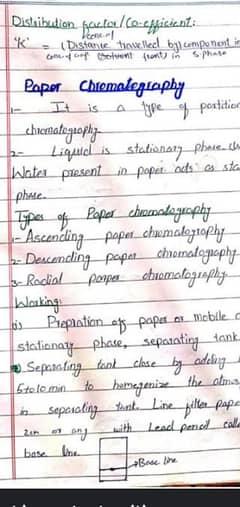 Distribution factor/Co-efficient:
conc. of
'K' = (Distance travelled by) component in
conc. of (Solvent front) in S. phase
Paper Chromatography
1- It is a type of partition
chromatography
2- Liquid is stationary phase.
Water present in paper acts as sta
phase.
Types of Paper chromatography
1- Ascending paper chromatography
2- Descending paper chromatography
3- Radial paper chromatography
Working:
Prepration of paper or mobile
stationary phase, separating tank
Separating tank close by adding
5 to 10 min to homogenize the atmos
in separating tank. Line filter pape
2cm or any with Lead pencil calle
base line.
→Base line